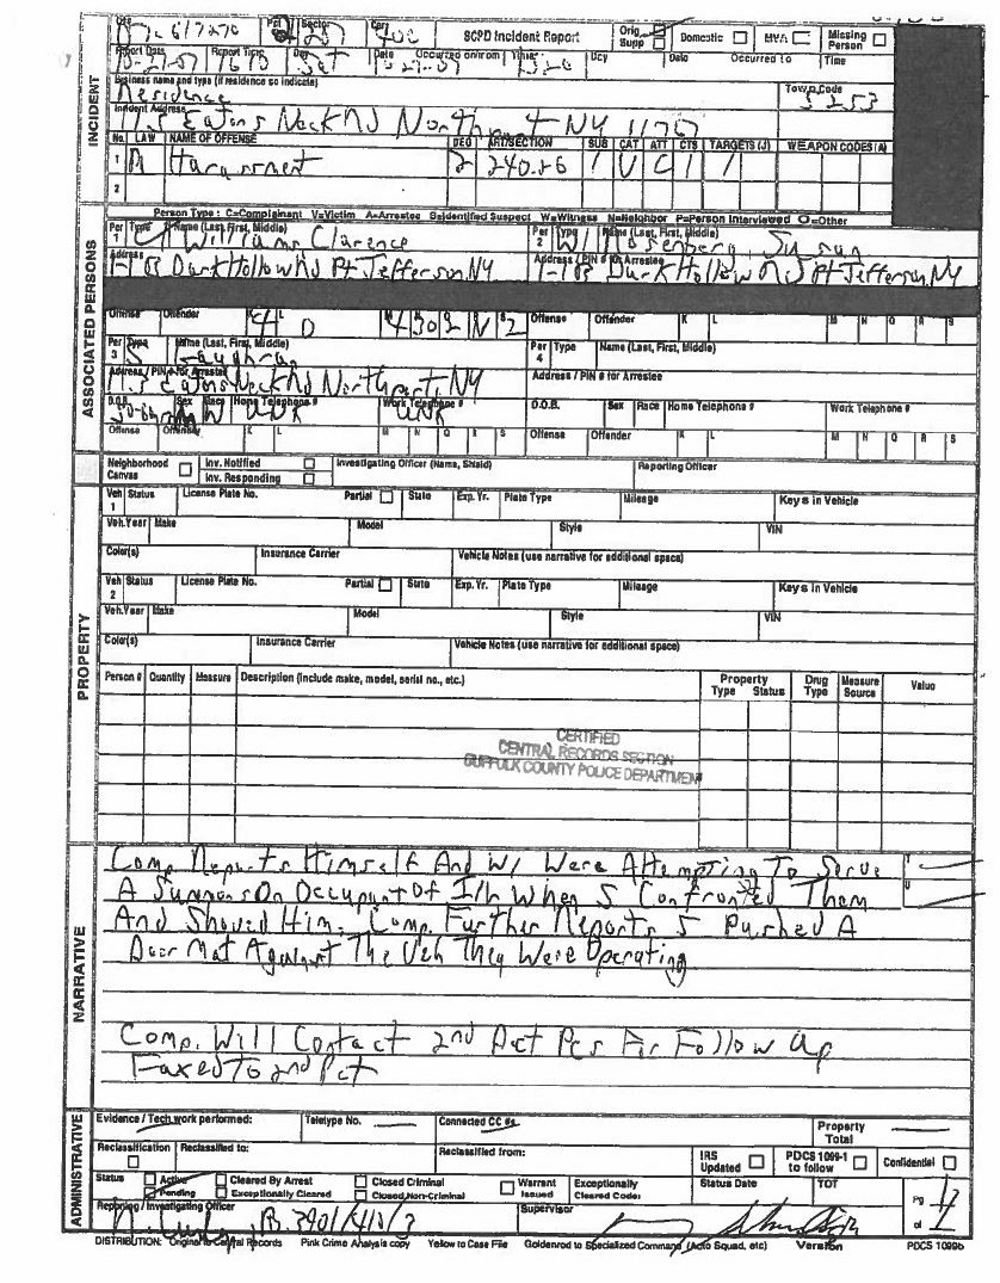 SCPD Incident Report
Orig
Supp
Domestic
MVA
Missing
Person
Report Date Report Time Day Date Occurred on/from Time Dcy Date Occurred to Time
Sat
Business name and type (if residence so indicate) Town Code
Residence 5253
Incident Address
Eatons Neck Rd North NY
INCIDENT
No. LAW NAME OF OFFENSE DEG ART/SECTION SUB CAT ATT CTS TARGETS (J) WEAPON CODES (A)
1 Harassment 2 240.26 1 V C 1 1
2
Person Type: C=Complainant V=Victim A=Arrestee S=Identified Suspect W=Witness N=Neighbor P=Person Interviewed O=Other
Per Type Name (Last, First, Middle) Per Type Name (Last, First, Middle)
1 Williams Clarence 2 Rosenberg, Susan
Address Address / PIN # for Arrestee
Dark Hollow Rd Pt Jefferson NY Dark Hollow Rd Pt Jefferson NY
ASSOCIATED PERSONS
Offense Offender Offense Offender K L M N Q R S
Per Type Name (Last, First, Middle) Per Type Name (Last, First, Middle)
3 S 4
Address / PIN # for Arrestee Address / PIN # for Arrestee
Eatons Neck Rd Northport, NY
D.O.B. Sex Race Home Telephone # Work Telephone # D.O.B. Sex Race Home Telephone # Work Telephone #
M W UNK UNK
Offense Offender K L M N Q R S Offense Offender K L M N Q R S
Neighborhood
Canvas
Inv. Notified
Inv. Responding
Investigating Officer (Name, Shield)
Reporting Officer
Veh Status License Plate No. Partial State Exp. Yr. Plate Type Mileage Keys in Vehicle
1
Veh.Year Make Model Style VIN
Color(s) Insurance Carrier Vehicle Notes (use narrative for additional space)
Veh Status License Plate No. Partial State Exp. Yr. Plate Type Mileage Keys in Vehicle
2
Veh.Year Make Model Style VIN
Color(s) Insurance Carrier Vehicle Notes (use narrative for additional space)
PROPERTY
Person # Quantity Measure Description (include make, model, serial no., etc.) Property Type Status Drug Type Measure Source Value
CERTIFIED
CENTRAL RECORDS SECTION
SUFFOLK COUNTY POLICE DEPARTMENT
NARRATIVE
Comp Reports Himself And W1 Were Attempting To Serve
A Summons On Occupant Of I/L When S Confronted Them
And Shoved Him. Comp. Further Reports S Pushed A
Door Mat Against The Veh They Were Operating
Comp. Will Contact 2nd Pct Pcs For Follow Up
Faxed To 2nd Pct
ADMINISTRATIVE
Evidence / Tech work performed: Teletype No. Connected CC #s Property
Total
Reclassification Reclassified to: Reclassified from: IRS
Updated
PDCS 1099-1
to follow
Confidential
Status Active Cleared By Arrest Closed Criminal Warrant
Issued
Exceptionally
Cleared Code:
Status Date TOT
Pending Exceptionally Cleared Closed Non-Criminal
Reporting / Investigating Officer Supervisor Pg 1
of 1
DISTRIBUTION: Original to Central Records Pink Crime Analysis copy Yellow to Case File Goldenrod to Specialized Command (Auto Squad, etc) Version PDCS 1099b